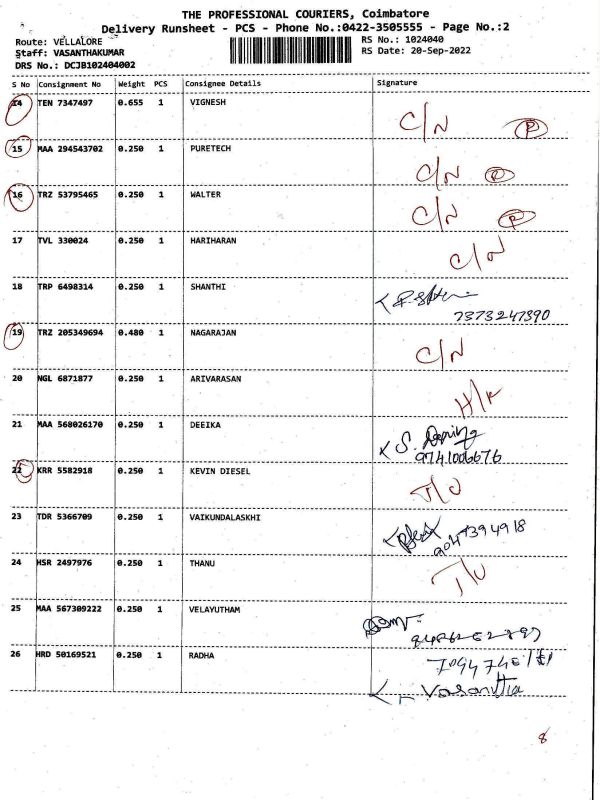 THE PROFESSIONAL COURIERS, Coimbatore
Delivery Runsheet - PCS - Phone No.:0422-3505555 - Page No.:2
Route: VELLALORE
RS No.: 1024040
Staff: VASANTHAKUMAR
RS Date: 20-Sep-2022
DRS No.: DCJB102404002
S No Consignment No Weight PCS Consignee Details Signature
14 TEN 7347497 0.655 1 VIGNESH C/N R
15 MAA 294543702 0.250 1 PURETECH C/N R
16 TRZ 53795465 0.250 1 WALTER C/N R
17 TVL 330024 0.250 1 HARIHARAN C/N
18 TRP 6498314 0.250 1 SHANTHI
7373247390
19 TRZ 205349694 0.480 1 NAGARAJAN C/N
20 NGL 6871877 0.250 1 ARIVARASAN
21 MAA 568026170 0.250 1 DEEIKA S.
9741006676
22 KRR 5582918 0.250 1 KEVIN DIESEL
23 TDR 5366709 0.250 1 VAIKUNDALASKHI
9047394918
24 HSR 2497976 0.250 1 THANU
25 MAA 567309222 0.250 1 VELAYUTHAM
26 HRD 50169521 0.250 1 RADHA
Vasantha
8